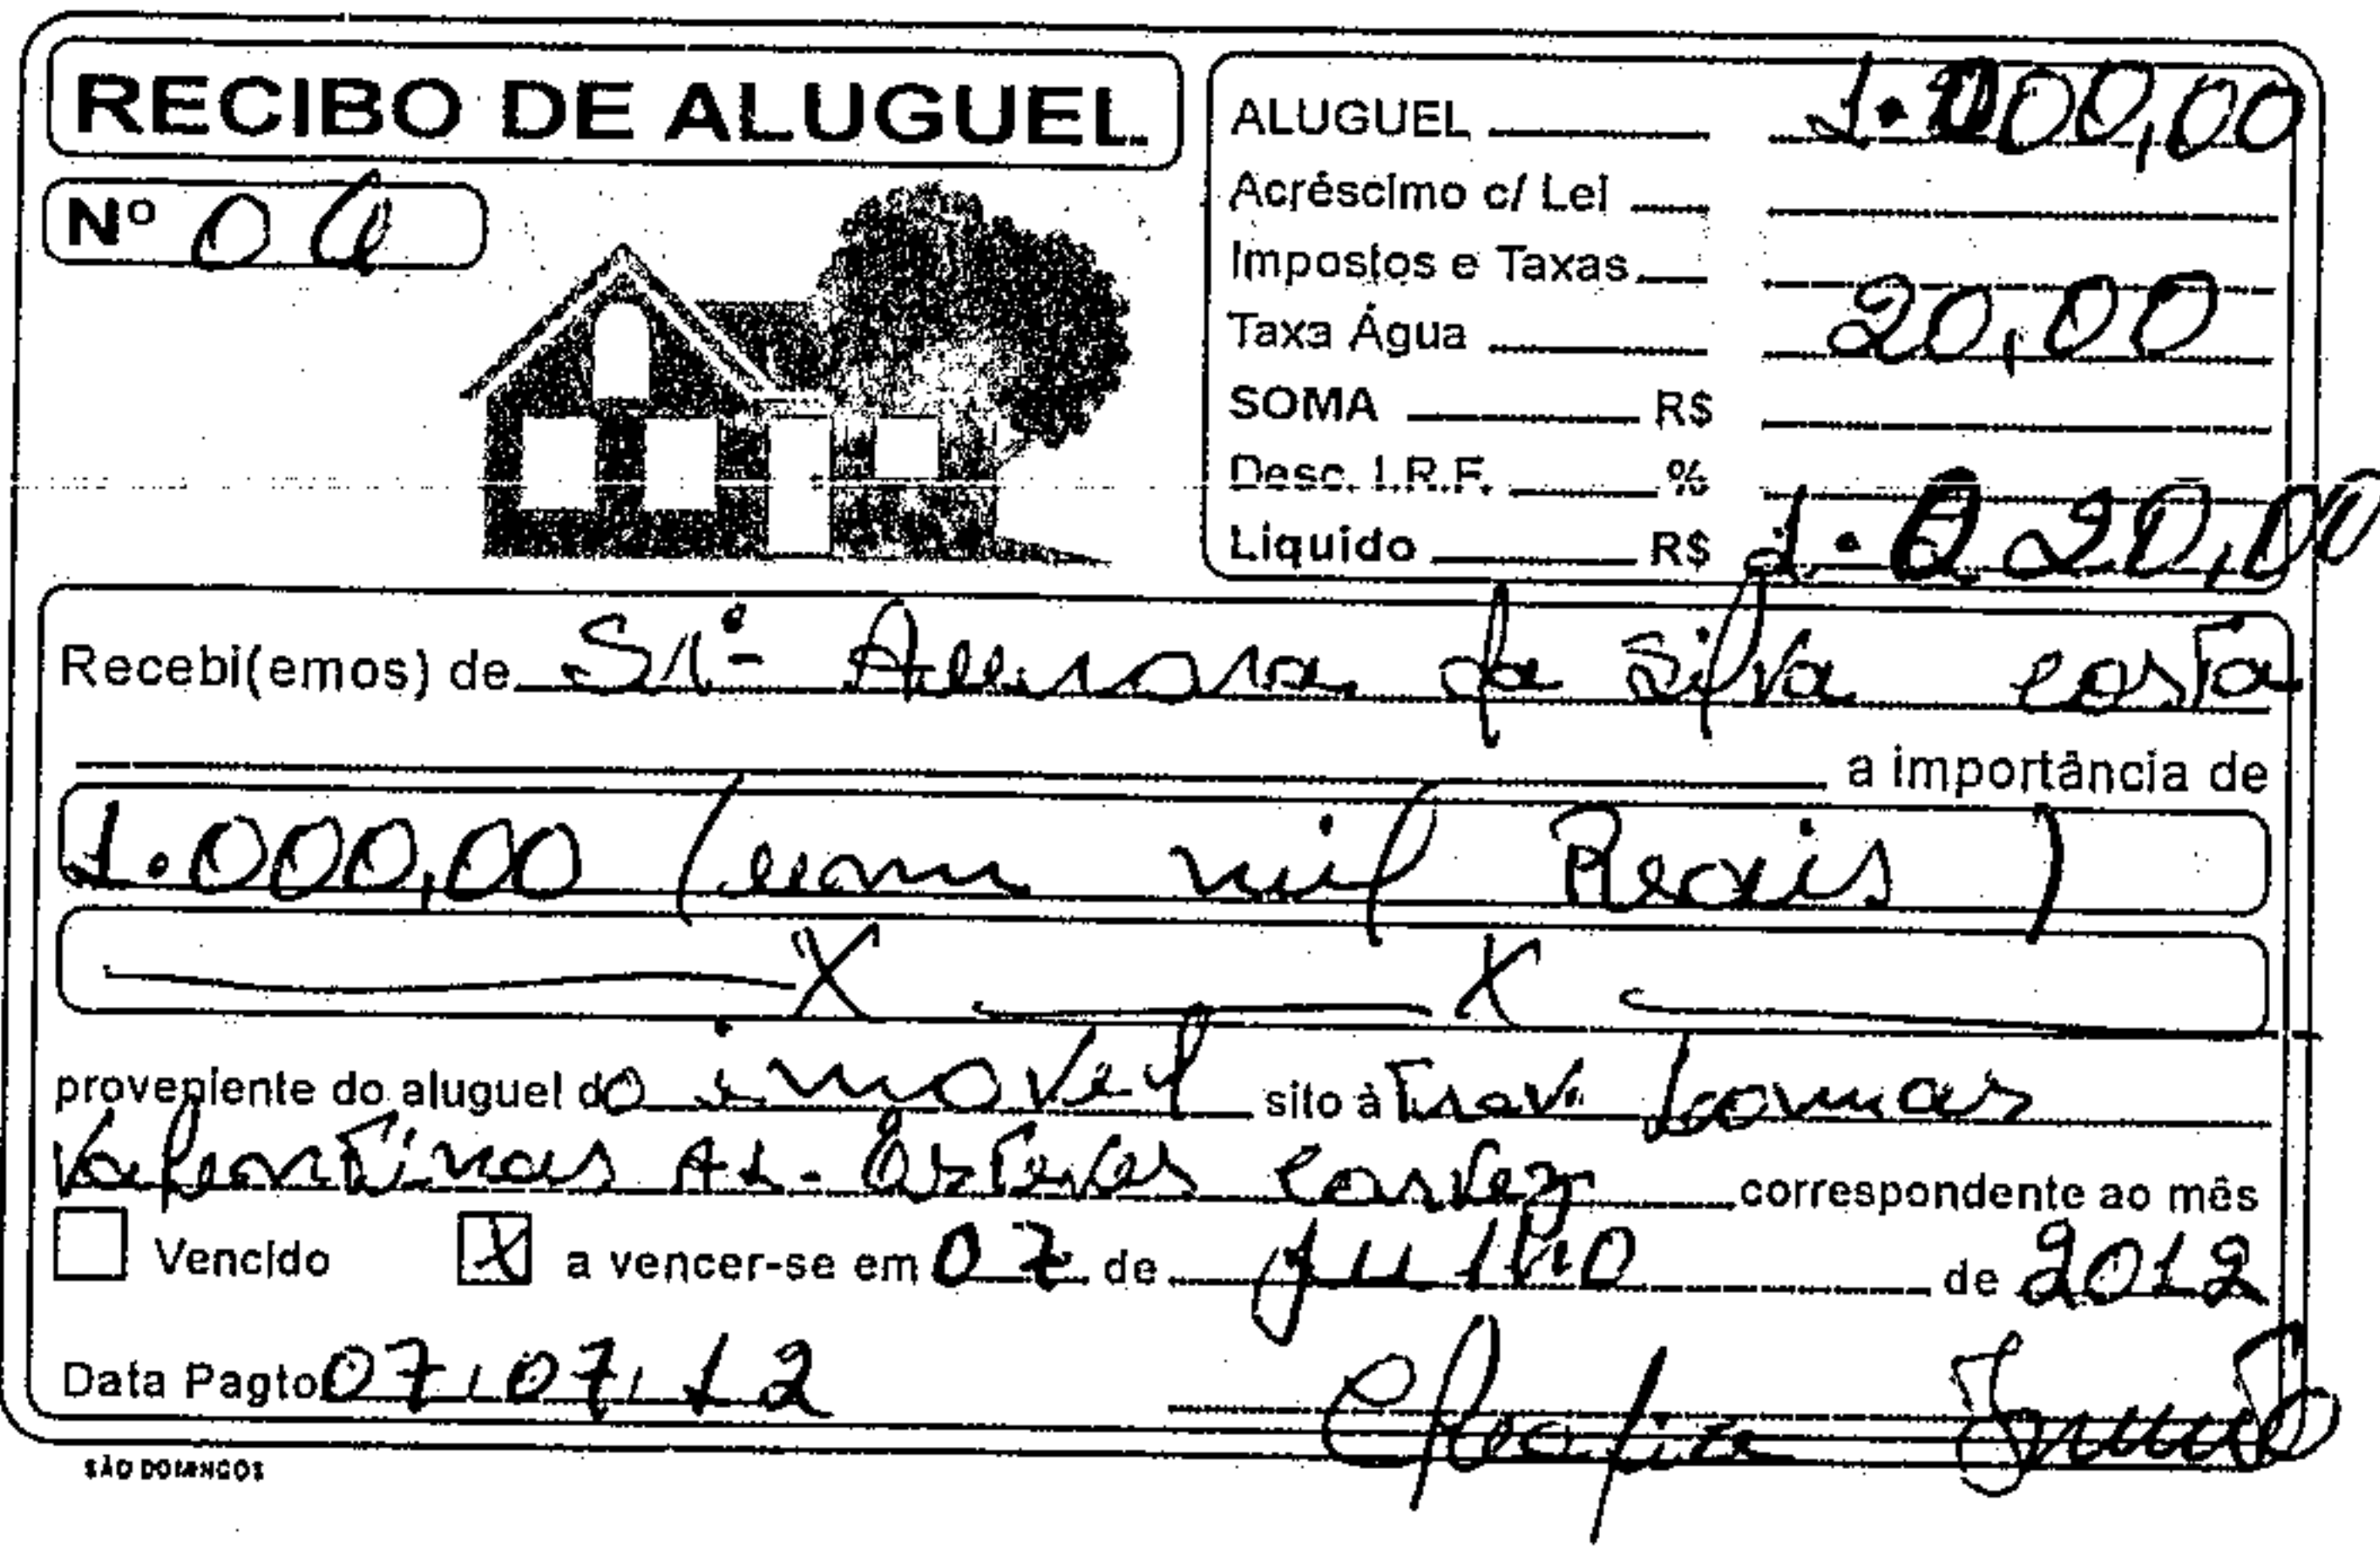 RECIBO DE ALUGUEL
Nº 06
ALUGUEL 1.000,00
Acréscimo c/ Lei
Impostos e Taxas
Taxa Água 20,00
SOMA R$
Desc. I.R.F. %
Liquido R$ 1.020,00
Recebi(emos) de Srª Aurora da Silva costa
a importância de
1.000,00 (um mil Reais)
X X
proveniente do aluguel do imovel sito à Trav.
correspondente ao mês
Vencido X a vencer-se em 07 de julho de 2012
Data Pagto 07/07/12
SÃO DOMINGOS